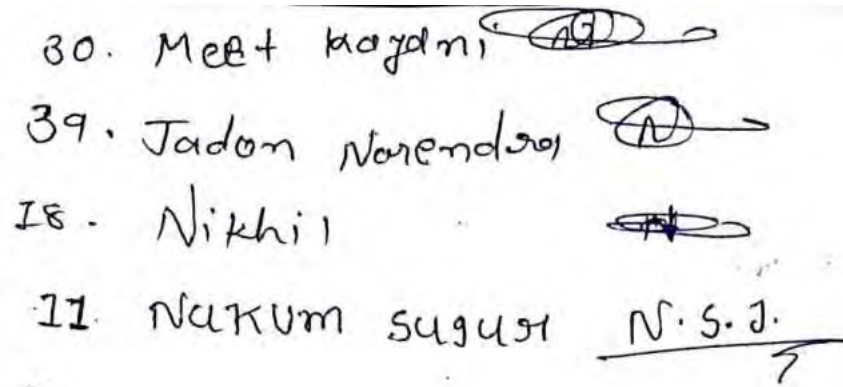 30. Meet
39. Jadon Narendra
18. Nikhil
11. Nakum sagar N.S.J.